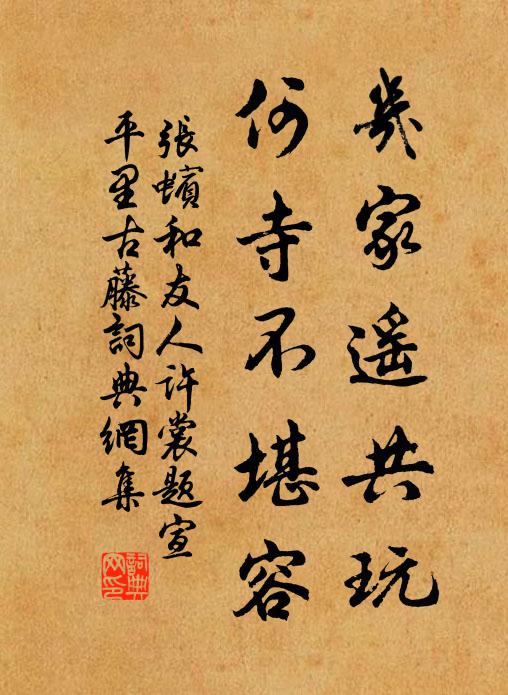 幾家遥共玩
何寺不堪容
張蠙和友人許裳題宣
平里古藤詞典網集
詞典网印